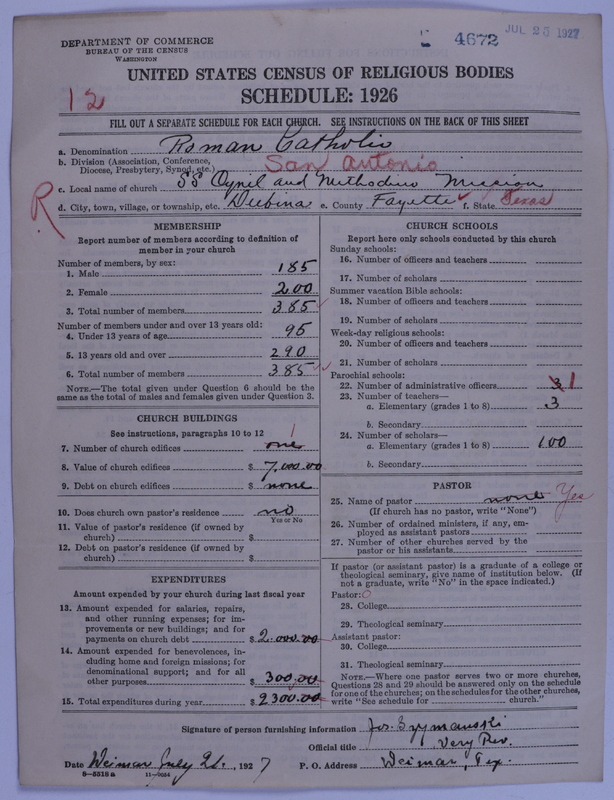 DEPARTMENT OF COMMERCE
BUREAU OF THE CENSUS
WASHINGTON
4672
JUL 25 1927
UNITED STATES CENSUS OF RELIGIOUS BODIES
SCHEDULE: 1926
12
FILL OUT A SEPARATE SCHEDULE FOR EACH CHURCH. SEE INSTRUCTIONS ON THE BACK OF THIS SHEET
a. Denomination Roman Catholic
b. Division (Association, Conference, Diocese, Presbytery, Synod, etc.) San Antonio
c. Local name of church SS Cyril and Methodius Mission
R
d. City, town, village, or township, etc. Dubina e. County Fayette f. State Texas
MEMBERSHIP
Report number of members according to definition of
member in your church
Number of members, by sex:
1. Male 185
2. Female 200
3. Total number of members 385
Number of members under and over 13 years old:
4. Under 13 years of age 95
5. 13 years old and over 290
6. Total number of members 385
NOTE.—The total given under Question 6 should be
same as the total of males and females given under Question 3.
CHURCH BUILDINGS
See instructions, paragraphs 10 to 12
7. Number of church edifices one 1
8. Value of church edifices $ 7,000.00
9. Debt on church edifices $ none
10. Does church own pastor's residence no
Yes or No
11. Value of pastor's residence (if owned by
church) $
12. Debt on pastor's residence (if owned by
church) $
EXPENDITURES
Amount expended by your church during last fiscal year
13. Amount expended for salaries, repairs,
and other running expenses; for im-
provements or new buildings; and for
payments on church debt $ 2.000.00
14. Amount expended for benevolences, in-
cluding home and foreign missions; for
denominational support; and for all
other purposes $ 300.00
15. Total expenditures during year $ 2300.00
CHURCH SCHOOLS
Report here only schools conducted by this church
Sunday schools:
16. Number of officers and teachers
17. Number of scholars
Summer vacation Bible schools:
18. Number of officers and teachers
19. Number of scholars
Week-day religious schools:
20. Number of officers and teachers
21. Number of scholars
Parochial schools:
22. Number of administrative officers 3 1
23. Number of teachers—
a. Elementary (grades 1 to 8) 3
b. Secondary
24. Number of scholars—
a. Elementary (grades 1 to 8) 100
b. Secondary
PASTOR
25. Name of pastor none Yes
(If church has no pastor, write "None")
26. Number of ordained ministers, if any, em-
ployed as assistant pastors
27. Number of other churches served by the
pastor or his assistants
If pastor (or assistant pastor) is a graduate of a college or
theological seminary, give name of institution below. (If
not a graduate, write "No" in the space indicated.)
Pastor: 0
28. College
29. Theological seminary
Assistant pastor:
30. College
31. Theological seminary
NOTE.—Where one pastor serves two or more churches,
Questions 28 and 29 should be answered only on the schedule
for one of the churches; on the schedules for the other churches,
write "See schedule for church."
Signature of person furnishing information Jos. Szymanski
Official title Very Rev.
Date Weimar July 21., 1927 P. O. Address Weimar, Tex.
8—5518 a 11—9054